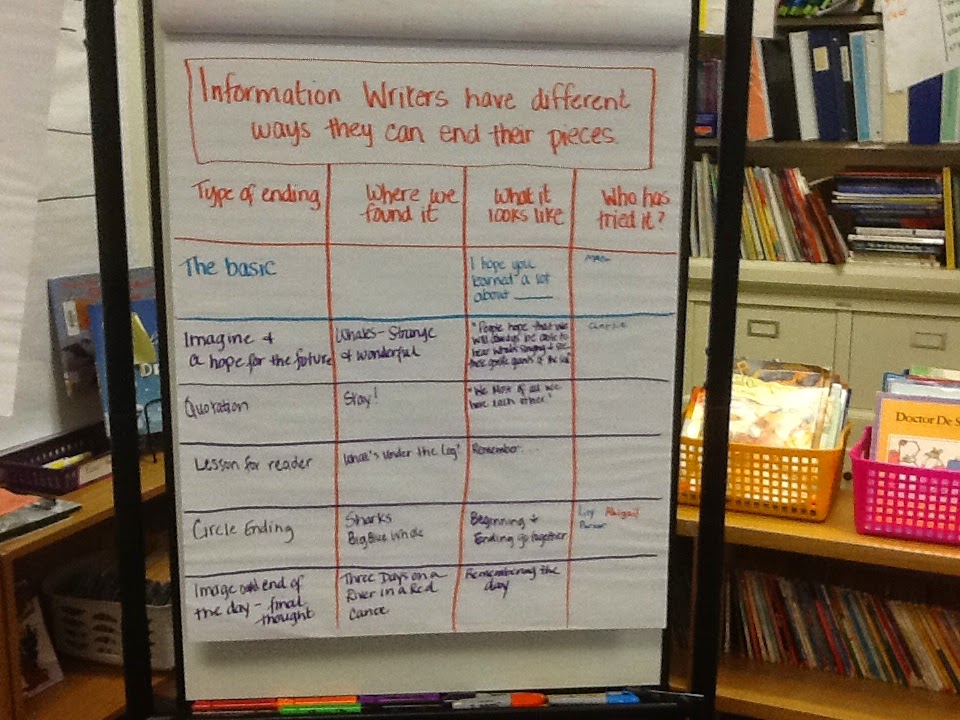 Information Writers have different
ways they can end their pieces.
Type of ending
Where we
found it
What it
looks like
Who has
tried it?
The basic
I hope you
learned a lot
about ____
Imagine &
a hope for the future
Whales - Strange
& wonderful
"People hope that we
will always be able to
hear whales singing & see
these gentle giants of the sea"
Quotation
Stay!
"We Most of all we
have each other."
Lesson for reader
"What's Under the Log"
Remember....
Circle Ending
Sharks
Big Blue Whale
Beginning &
Ending go together
Lily Abigail
Parker
Image end of
the day - final
thought
Three Days on a
River in a Red
Canoe
Remembering the
day
Doctor De S